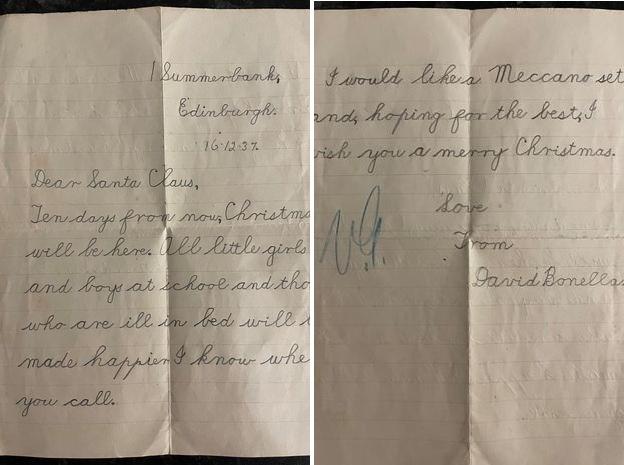 1 Summerbank,
Edinburgh.
16.12.37.
Dear Santa Claus,
Ten days from now, Christma
will be here. All little girls
and boys at school and tho
who are ill in bed will
made happier I know whe
you call.
I would like a Meccano set
and, hoping for the best, I
wish you a merry Christmas.
Love
From
David Bonella
V.G.